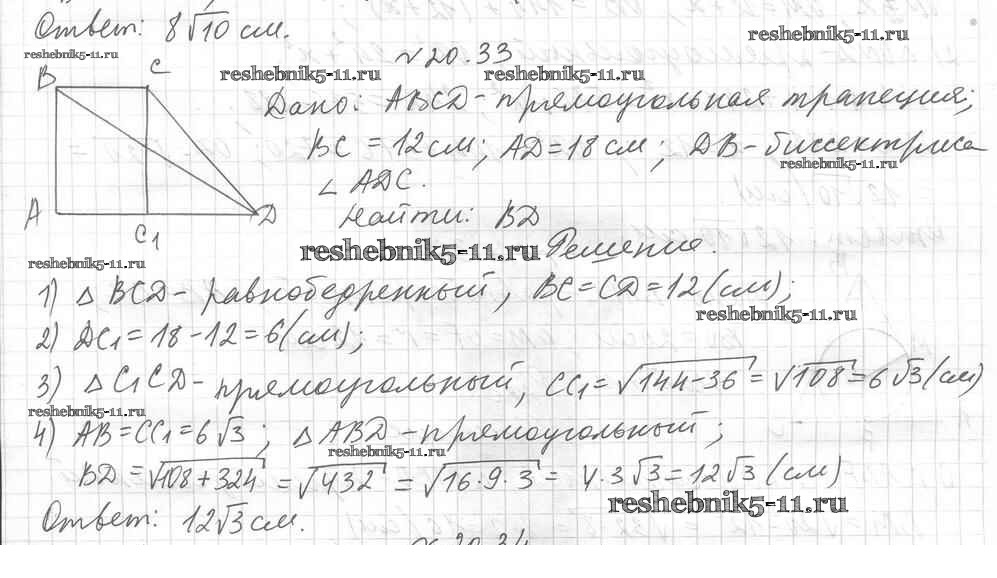 Ответ: 8√10 см.
reshebnik5-11.ru
reshebnik5-11.ru
№20.33
reshebnik5-11.ru
reshebnik5-11.ru
B C
A D
C1
Дано: ABCD - прямоугольная трапеция;
BC = 12 см; AD = 18 см; DB - биссектриса
reshebnik5-11.ru
∠ ADC.
Найти: BD
reshebnik5-11.ru
Решение.
reshebnik5-11.ru
1) △ BCD - равнобедренный, BC = CD = 12 (см);
reshebnik5-11.ru
2) DC1 = 18 - 12 = 6 (см);
3) △ C1CD - прямоугольный, CC1 = √144-36 = √108 = 6√3 (см)
reshebnik5-11.ru
4) AB = CC1 = 6√3; △ ABD - прямоугольный;
reshebnik5-11.ru
BD = √108+324 = √432 = √16·9·3 = 4·3√3 = 12√3 (см)
reshebnik5-11.ru
Ответ: 12√3 см.